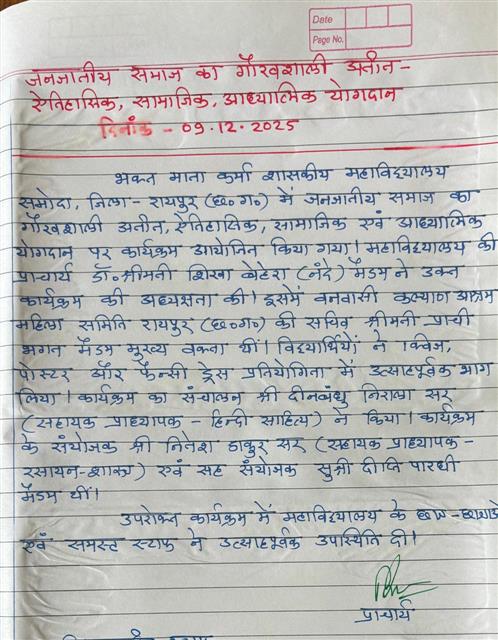 Date
Page No.
जनजातीय समाज का गौरवशाली अतीत-
ऐतिहासिक, सामाजिक, आध्यात्मिक योगदान
दिनांक - 09.12.2025
भक्त माता कर्मा शासकीय महाविद्यालय
समोदा, जिला- रायपुर (छ०ग०) में जनजातीय समाज का
गौरवशाली अतीत, ऐतिहासिक, सामाजिक एवं आध्यात्मिक
योगदान पर कार्यक्रम आयोजित किया गया। महाविद्यालय की
प्राचार्य डॉ० श्रीमती शिखा बेहेरा (नंदे) मैडम ने उक्त
कार्यक्रम की अध्यक्षता की। इसमें वनवासी कल्याण आश्रम
महिला समिति रायपुर (छ०ग०) की सचिव श्रीमती प्राची
भगत मैडम मुख्य वक्ता थीं। विद्यार्थियों ने क्विज,
पोस्टर और फैन्सी ड्रेस प्रतियोगिता में उत्साहपूर्वक भाग
लिया। कार्यक्रम का संचालन श्री दीनबंधु निराला सर
(सहायक प्राध्यापक - हिन्दी साहित्य) ने किया। कार्यक्रम
के संयोजक श्री नितेश ठाकुर सर (सहायक प्राध्यापक-
रसायन-शास्त्र) एवं सह संयोजक सुश्री दीप्ति पारधी
मैडम थीं।
उपरोक्त कार्यक्रम में महाविद्यालय के छात्र-छात्राओं
एवं समस्त स्टाफ ने उत्साहपूर्वक उपस्थिति दी।
प्राचार्य